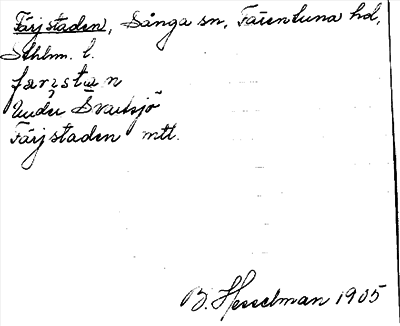 Färjstaden, Sånga sn, Färentuna hd,
Sthlm. l.
Under Svartsjö
Färjstaden mtl.
B. Hesselman 1905